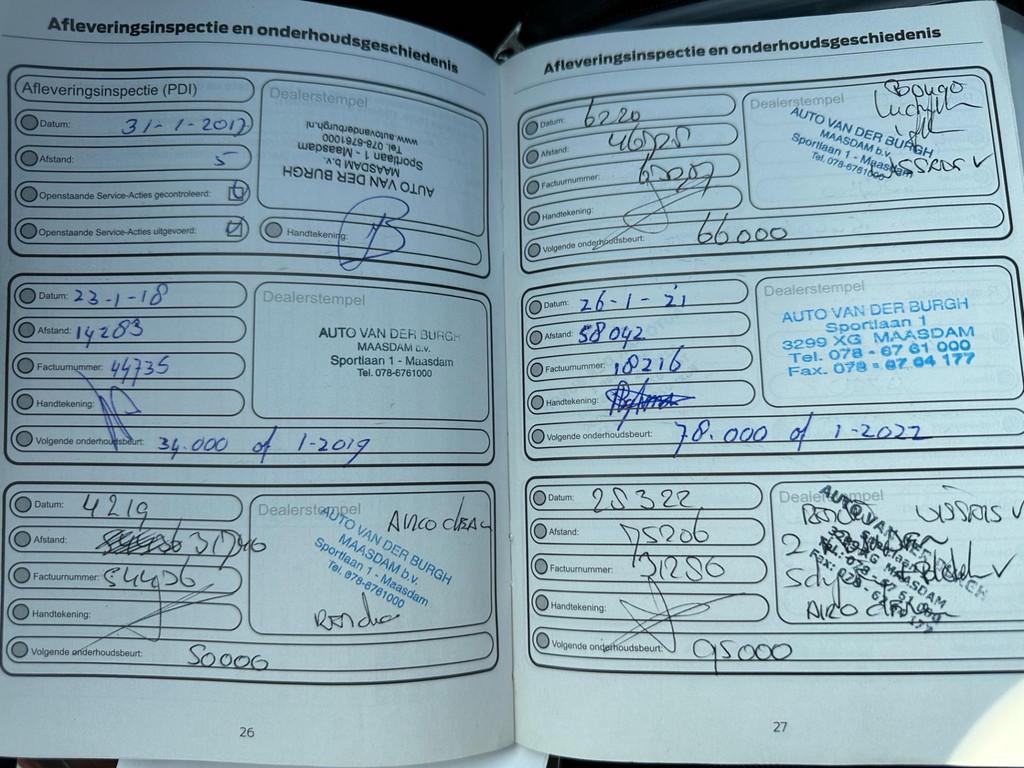 Afleveringsinspectie en onderhoudsgeschiedenis
Afleveringsinspectie (PDI)
Datum: 31-1-2017
Afstand: 5
Openstaande Service-Acties gecontroleerd:
Openstaande Service-Acties uitgevoerd:
Dealerstempel
AUTO VAN DER BURGH
MAASDAM b.v.
Sportlaan 1 - Maasdam
Tel. 078-6761000
www.autovanderburgh.nl
Handtekening:
Datum: 23-1-18
Afstand: 14283
Factuurnummer: 44735
Handtekening:
Volgende onderhoudsbeurt: 34.000 of 1-2019
Dealerstempel
AUTO VAN DER BURGH
MAASDAM b.v.
Sportlaan 1 - Maasdam
Tel. 078-6761000
Datum: 4219
Afstand:
Factuurnummer:
Handtekening:
Volgende onderhoudsbeurt: 50000
Dealerstempel
AIRCO CLEAN
AUTO VAN DER BURGH
MAASDAM b.v.
Sportlaan 1 - Maasdam
Tel. 078-6761000
26
Afleveringsinspectie en onderhoudsgeschiedenis
Datum: 6220
Afstand:
Factuurnummer:
Handtekening:
Volgende onderhoudsbeurt: 66000
Dealerstempel
AUTO VAN DER BURGH
MAASDAM b.v.
Sportlaan 1 - Maasdam
Tel. 078-6761000
Datum: 26-1-21
Afstand: 58042
Factuurnummer: 18216
Handtekening:
Volgende onderhoudsbeurt: 78.000 of 1-2022
Dealerstempel
AUTO VAN DER BURGH
Sportlaan 1
3299 XG MAASDAM
Tel. 078 - 67 61 000
Fax. 078 - 67 64 177
Datum: 28322
Afstand: 75206
Factuurnummer: 31286
Handtekening:
Volgende onderhoudsbeurt: 95000
Dealerstempel
27